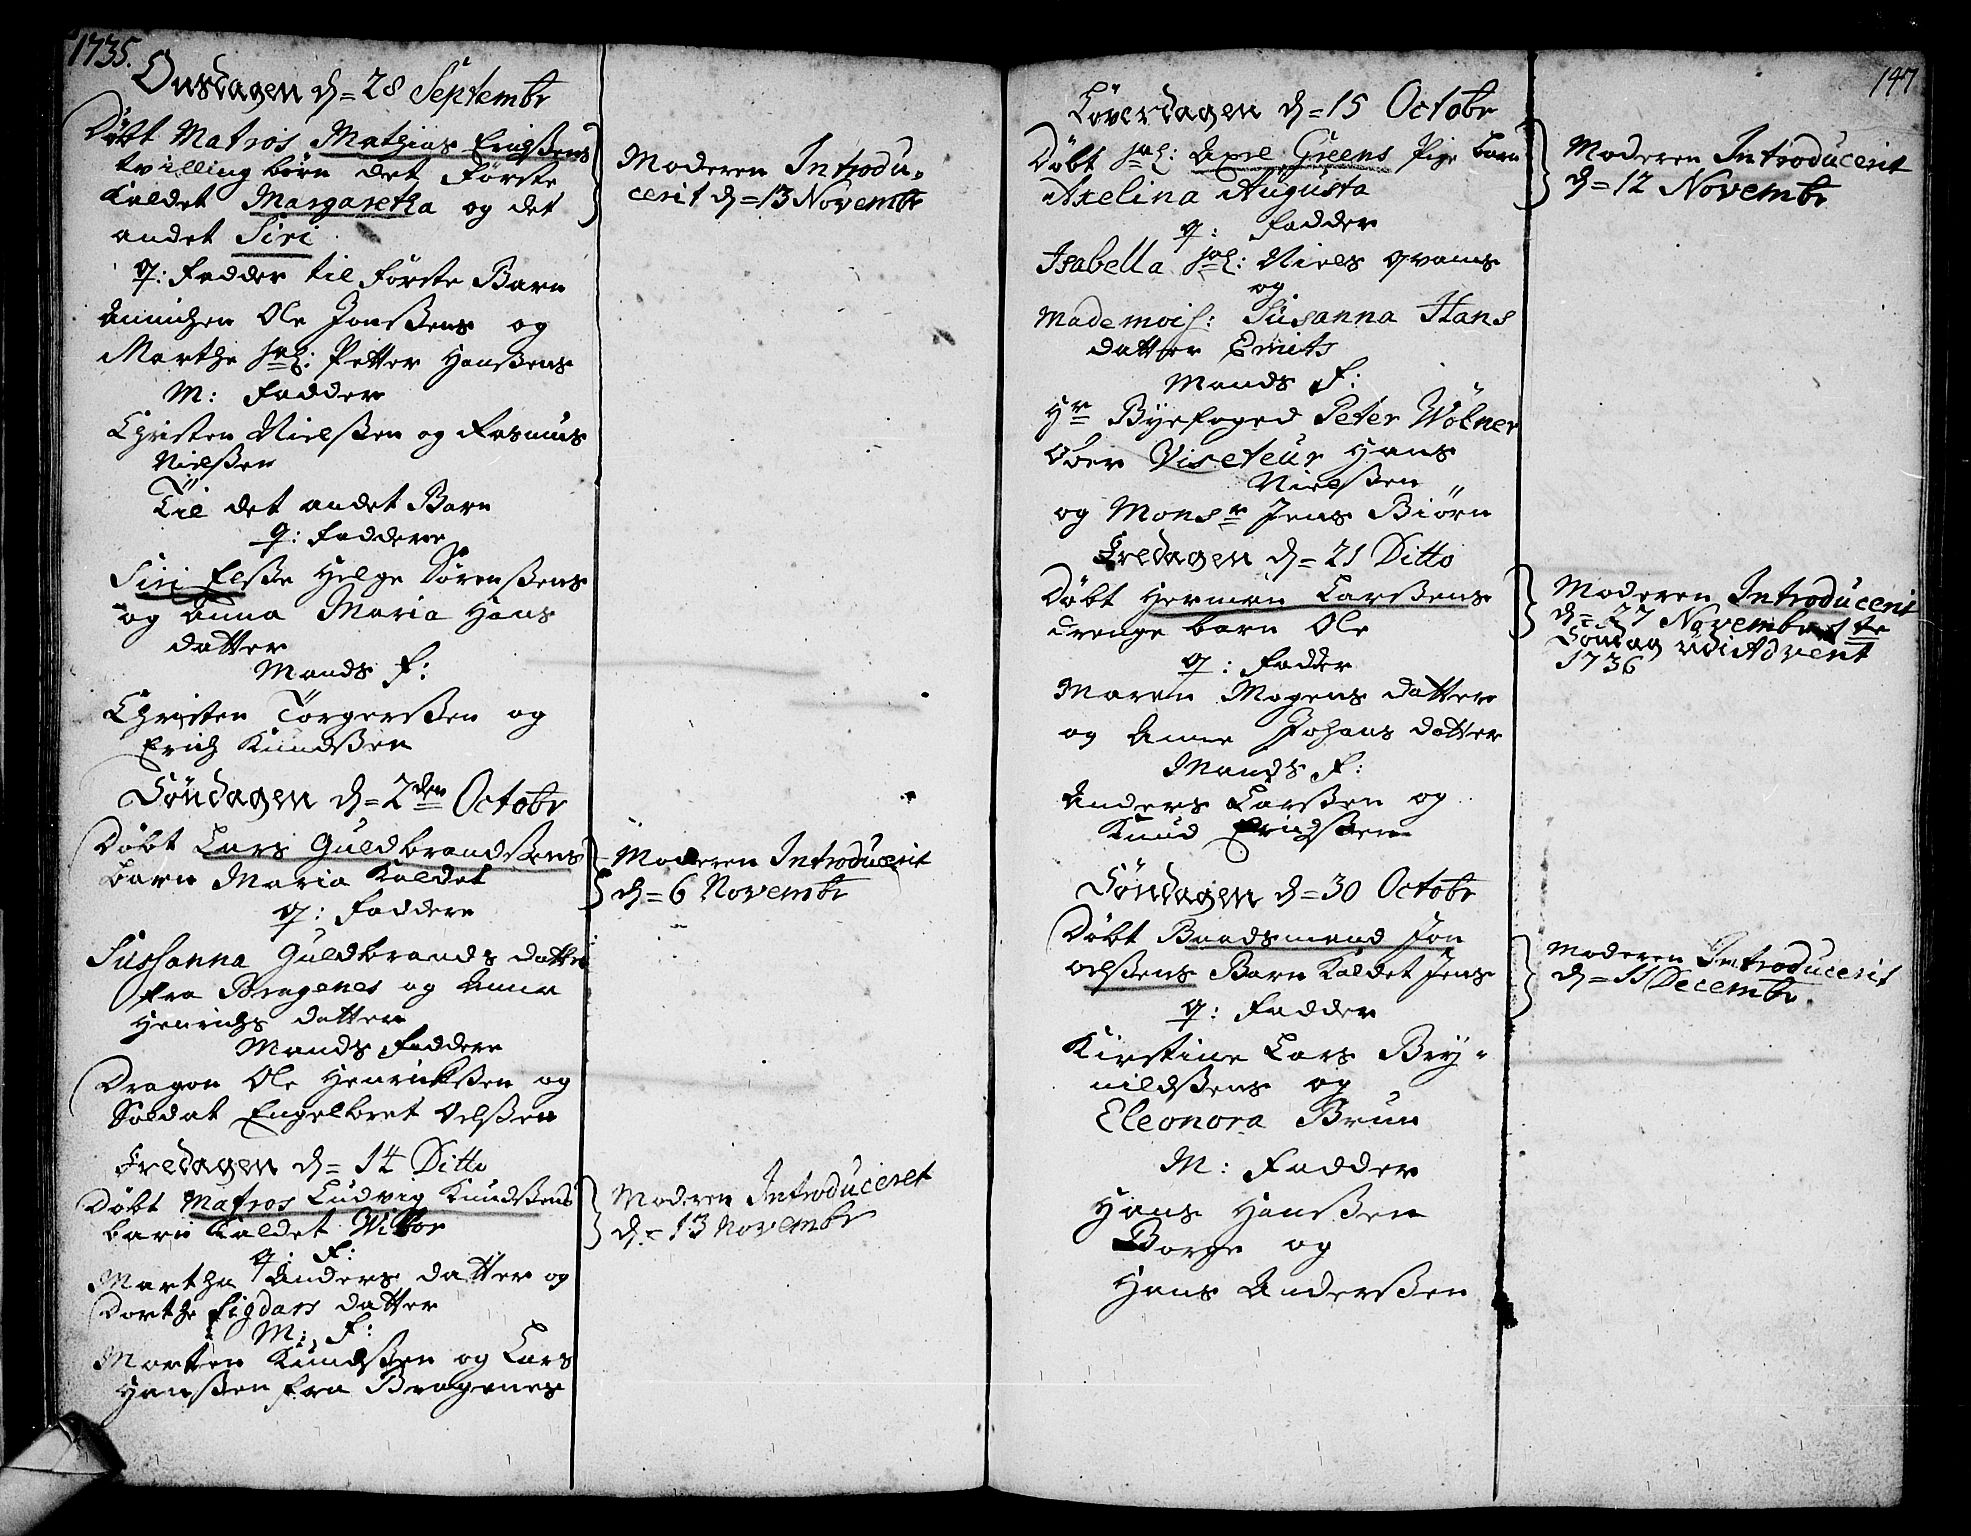 1735.
Onsdagen d= 28 Septembr
Døbt Matros Mathias Erichßens
tvilling børn det Første
Kaldet Margaretha og det
andet Siri
q: Fadder til Første Barn
Annichen Ole Jonßens og
Marthe sal: Petter Hanßens
M: Fadder
Christen Nielßen og Rasmus
Nielßen
Til det andet Barn
q: Faddere
Siri Elße Helge Sörenßens
og Anna Maria Hans
datter
Mands F:
Christen Törgerßen og
Erich Knudßen
Söndagen d= 2den Octobr
Døbt Lars Guldbrandßens
Barn Maria Kaldet
q: Faddere
Sussanna Guldbrands datter
fra Bragenes og Anna
Henrichs datter
Mands Faddere
Dragon Ole Henrickßen og
Soldat Engelbret Oelßen
Fredagen d= 14 Ditto
Døbt Matros Ludvig Knudßens
barn Kaldet Wictor
q: F:
Martha Anders datter og
Dorthe Sigdars datter
M: F:
Morten Knudßen og Lars
Hanßen fra Bragenes
Moderen Introdu-
cerit d= 13 Novembr
Moderen Introducerit
d= 6 Novembr
Moderen Introduceret
d= 13 Novembr
147
Löverdagen d= 15 Octobr
Døbt sal: Axel Greens Pige barn
Axelina Augusta
q: Fadder
Isabella sal: Niels qvams
og
Mademois: Susanna Hans
datter Smits
Mands F:
Hr Byefoged Peter Wölner
Over Viseteur Hans
Nielßen
og Monsr Jens Biörn
Fredagen d= 21 Ditto
Døbt Herman Larßens
drenge barn Ole
q: Fadder
Maren Mogens datter
og Anne Johans datter
Mands F:
Anders Larßen og
Knud Erichßen
Söndagen d= 30 Octobr
Døbt Baadsmand Jon
oelßens Barn Kaldet Jens
q: Fadder
Kirstine Lars Bry-
nildßens og
Eleonora Brun
M: Fadder
Hans Hanßen
Borge og
Hans Anderßen
Moderen Introducerit
d= 12 Novembr
Moderen Introducerit
d= 27 Novembr 1te
Söndag udi Advent
1736
Moderen Introducerit
d= 11 Decembr.